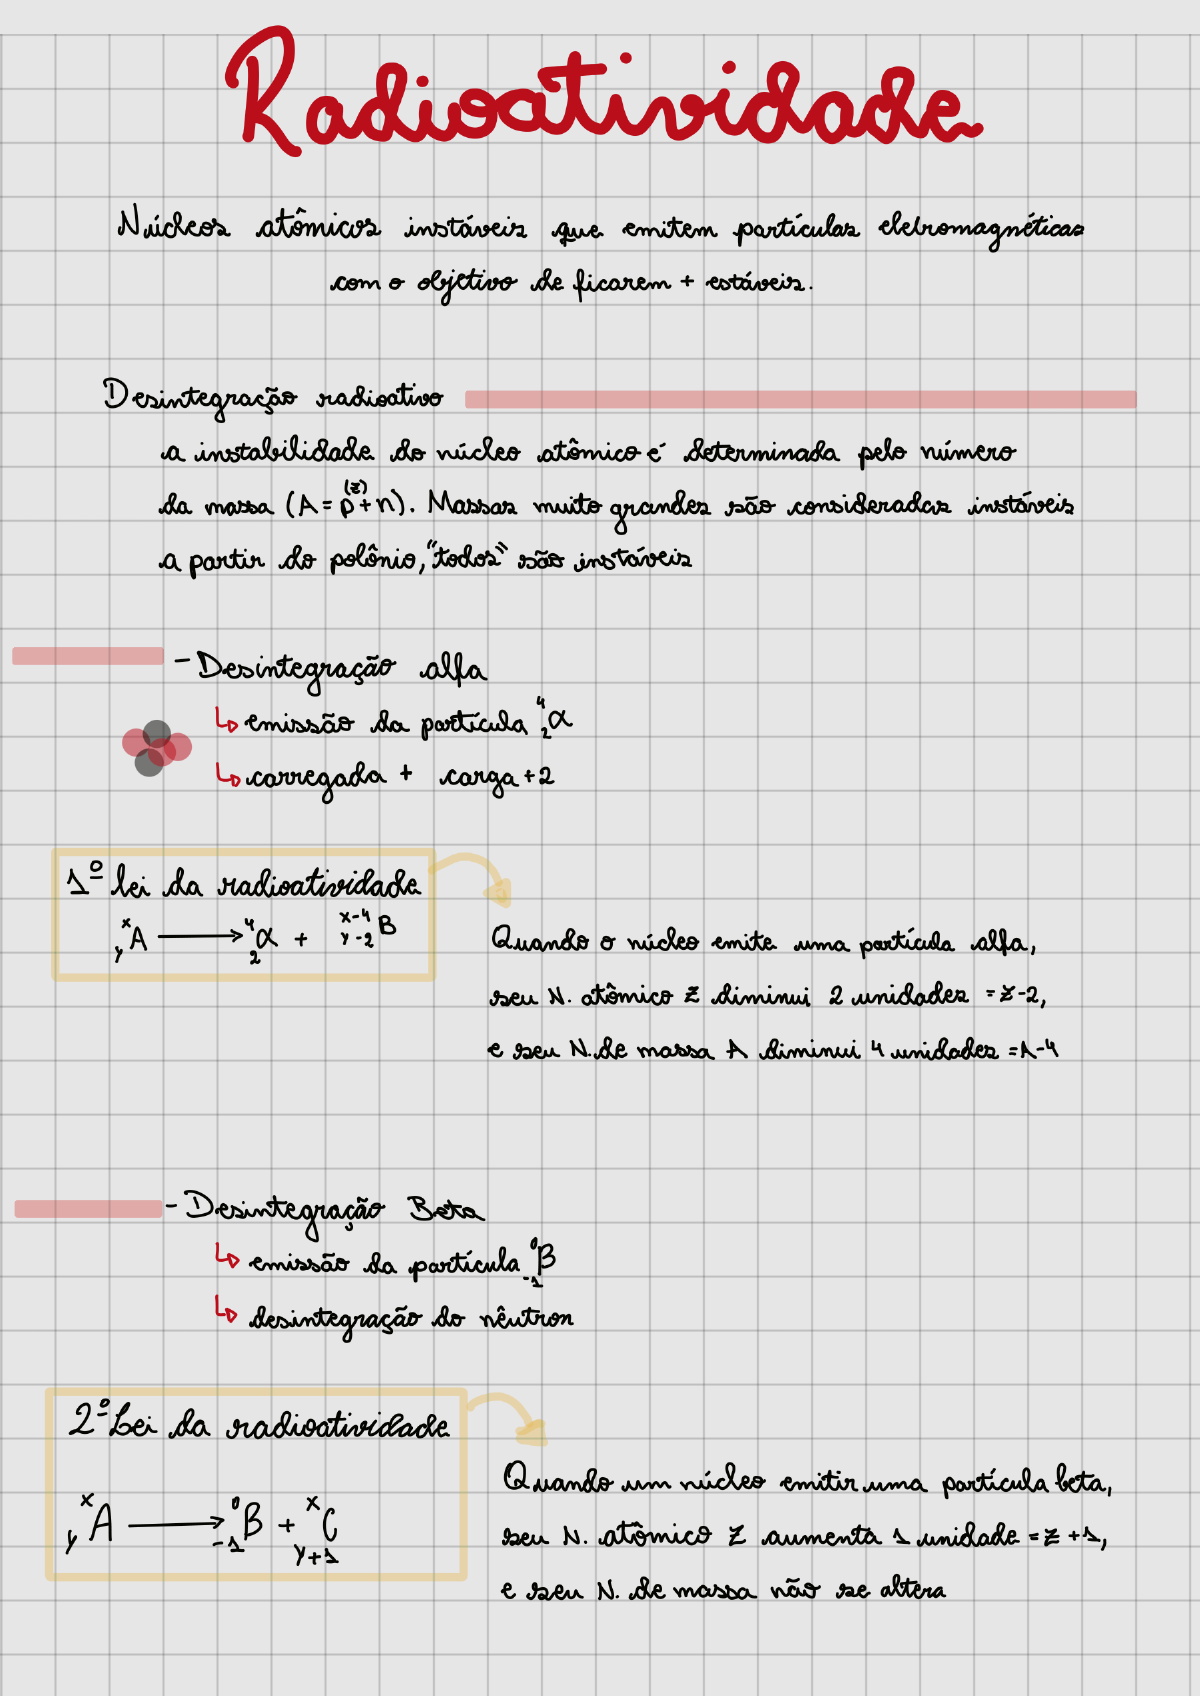 Radioatividade
Núcleos atômicos instáveis que emitem partículas eletromagnéticas
com o objetivo de ficarem + estáveis.
Desintegração radioativo
a instabilidade do núcleo atômico é determinada pelo número
da massa (A = p⁽ᶻ⁾ + n). Massas muito grandes são consideradas instáveis
a partir do polônio, "todos" são instáveis
- Desintegração alfa
↳ emissão da partícula ⁴₂α
↳ carregada + carga +2
1º lei da radioatividade
ˣᵧA → ⁴₂α + ˣ⁻⁴ᵧ₋₂B
Quando o núcleo emite uma partícula alfa,
seu N. atômico Z diminui 2 unidades = Z-2,
e seu N. de massa A diminui 4 unidades = A-4
- Desintegração Beta
↳ emissão da partícula ⁰₋₁β
↳ desintegração do nêutron
2º Lei da radioatividade
ˣᵧA → ⁰₋₁B + ˣᵧ₊₁C
Quando um núcleo emitir uma partícula beta,
seu N. atômico Z aumenta 1 unidade = Z +1,
e seu N. de massa não se altera